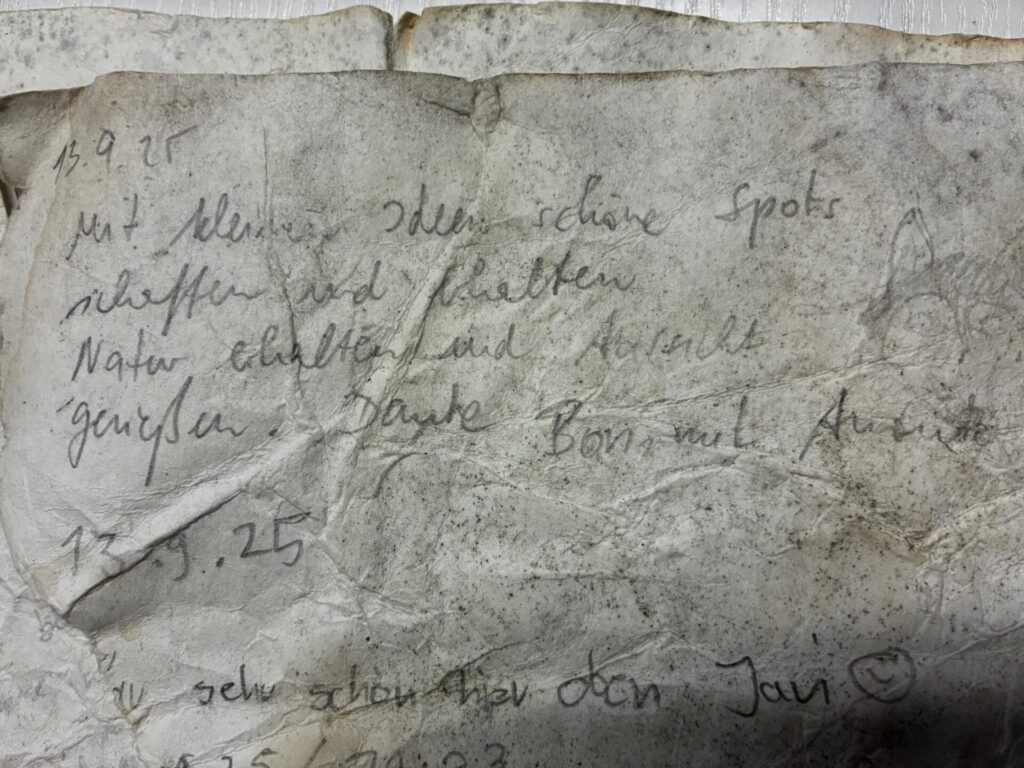 13.9.25
Mit kleinen Ideen schöne Spots
schaffen und erhalten
Natur erhalten und Aussicht
genießen. Danke Bonn mit
13.9.25
sehr schön hier oben Jan